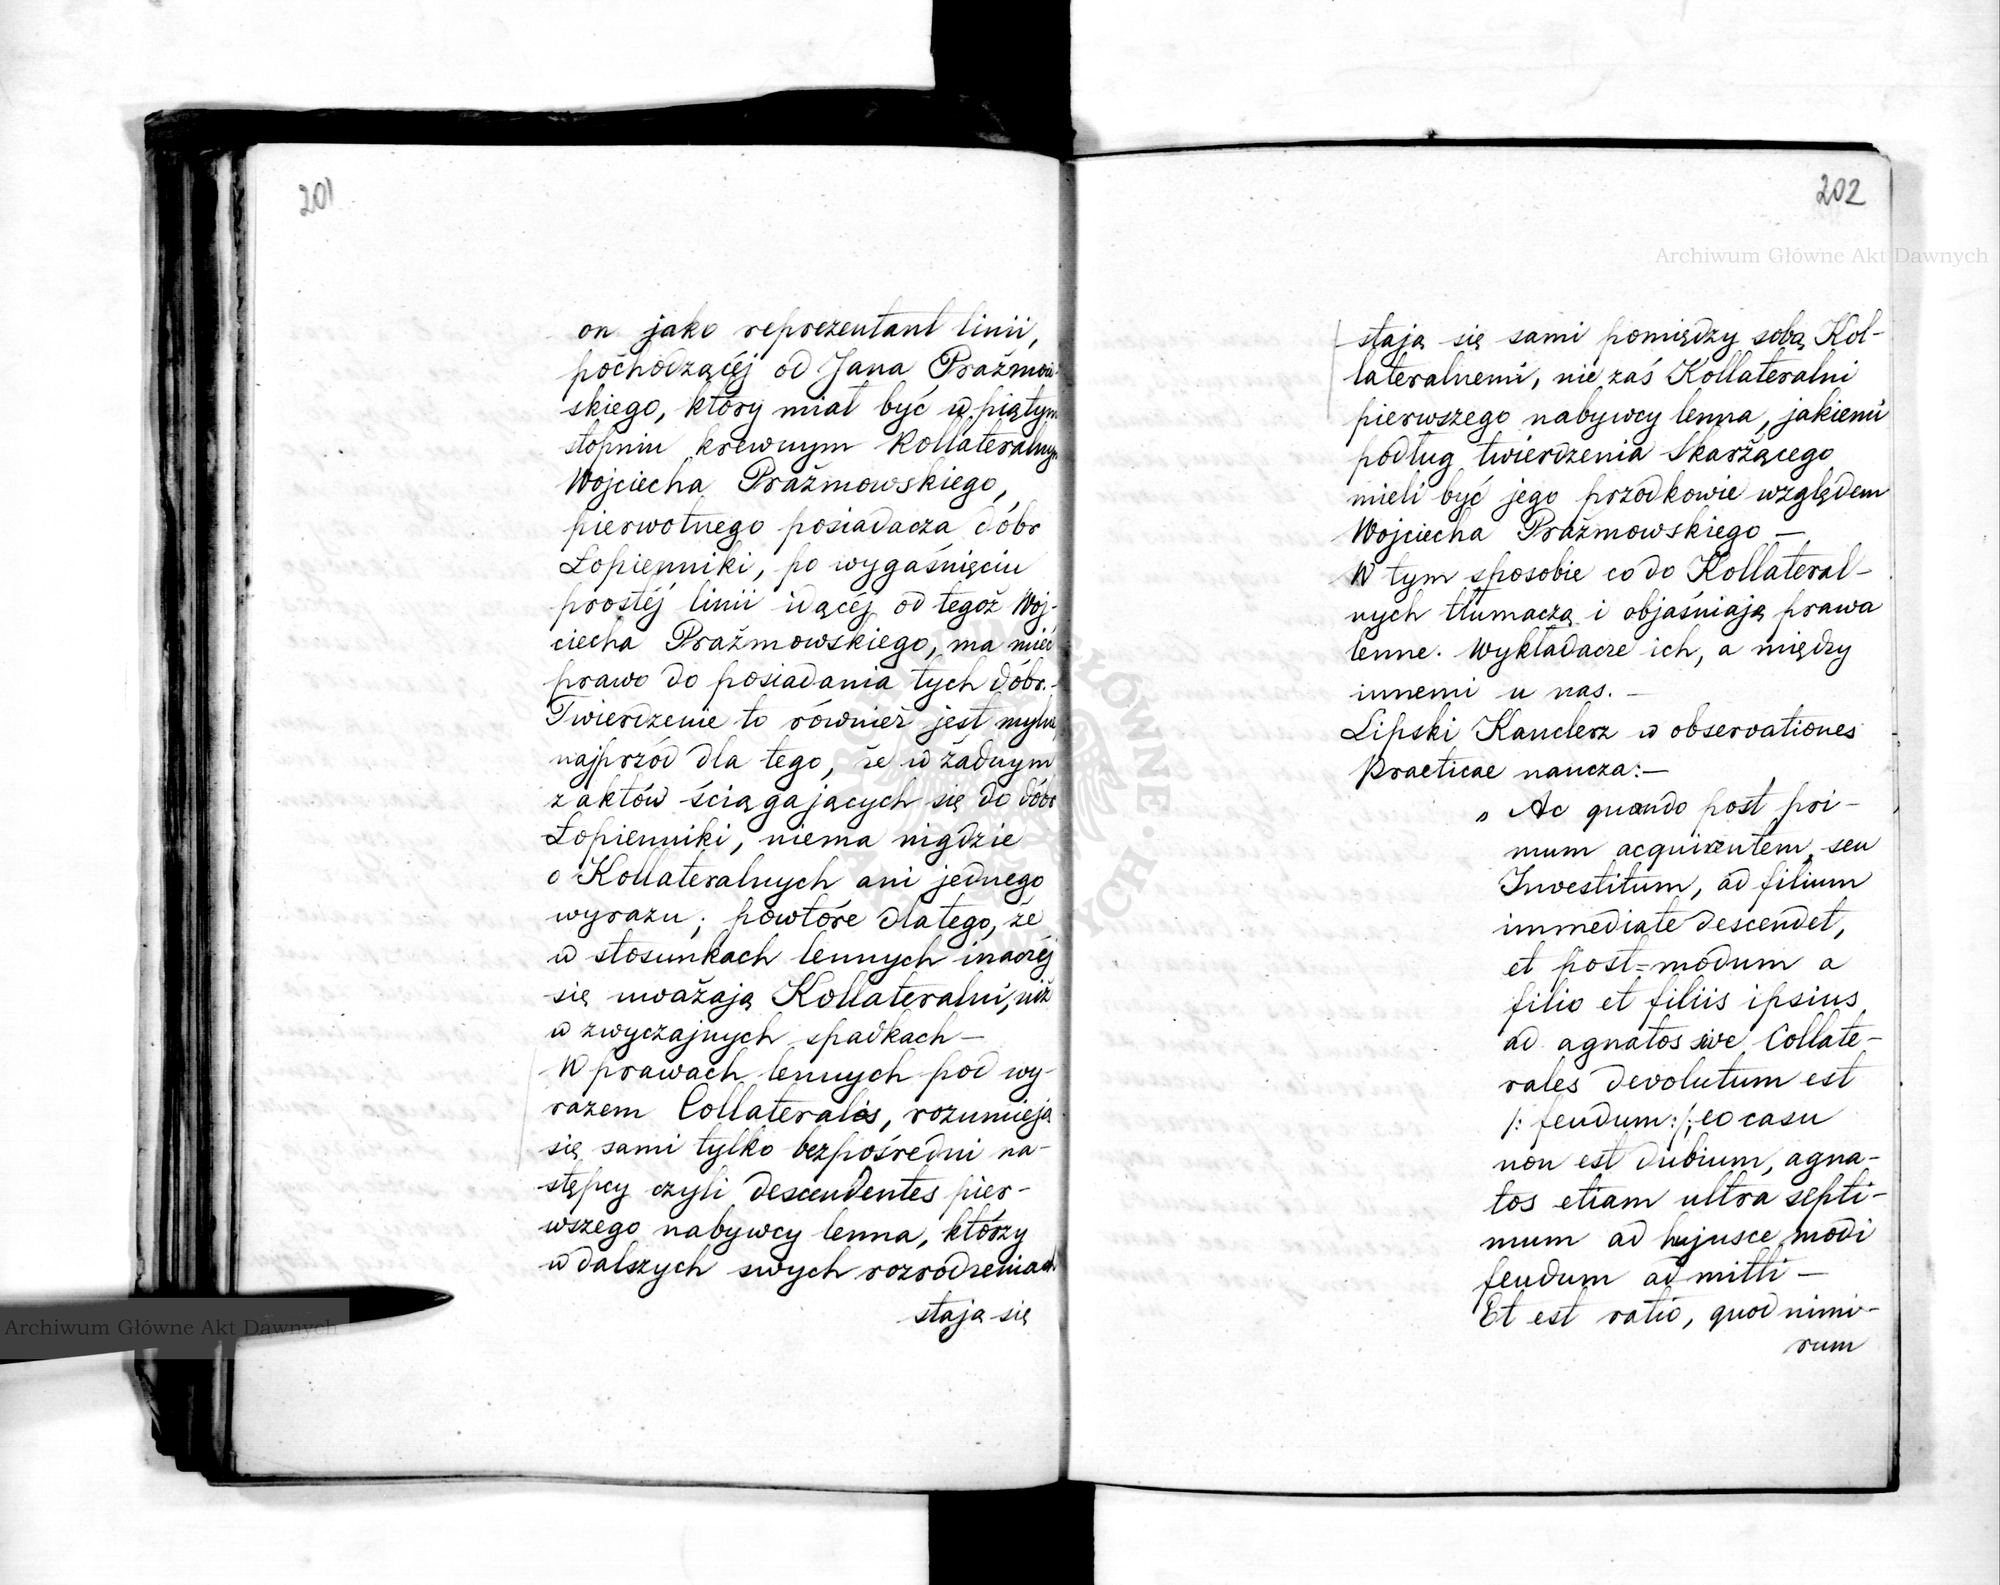 201
on jako reprezentant linii,
pochodzącéj od Jana Prażmow-
skiego, który miał być w piątym
stopniu krewnym Kollateralnym
Wojciecha Prażmowskiego,
pierwotnego posiadacza dóbr
Łopienniki, po wygaśnięciu
prostéj linii idącéj od tegoż Woj-
ciecha Prażmowskiego, ma mieć
prawo do posiadania tych dóbr.-
Twierdzenie to również jest mylne,
najprzód dla tego, że w żadnym
z aktów ściągających się do dóbr
Łopienniki, niema nigdzie
o Kollateralnych ani jednego
wyrazu; powtóre dlatego, że
w stosunkach lennych inaczéj
się uważają Kollateralni, niż
w zwyczajnych spadkach —
W prawach lennych pod wy-
razem Collaterales, rozumieją
się sami tylko bezpośredni na-
stępcy czyli descendentes pier-
wszego nabywcy lenna, którzy
w dalszych swych rozrodzeniach
stają się
202
stają się sami pomiędzy sobą Kol-
lateralnemi, nie zaś Kollateralni
pierwszego nabywcy lenna, jakiemi
podług twierdzenia Skarżącego
mieli być jego przodkowie względem
Wojciecha Prażmowskiego —
W tym sposobie co do Kollateral-
nych tłumaczą i objaśniają prawa
lenne. Wykładacze ich, a między
innemi u nas. —
Lipski Kanclerz w observationes
practicae naucza:—
„ Ac quando post pri-
mum acquirentem, seu
Investitum, ad filium
immediate descendet,
et post=modum a
filio et filiis ipsius
ad agnatos sive Collate-
rales devolutum est
/: feudum:/; eo casu
non est dubium, agna-
tos etiam ultra septi-
mum ad hujusce modi
feudum admitti —
Et est ratio, quod nimi-
rum
Archiwum Główne Akt Dawnych
Archiwum Główne Akt Dawnych